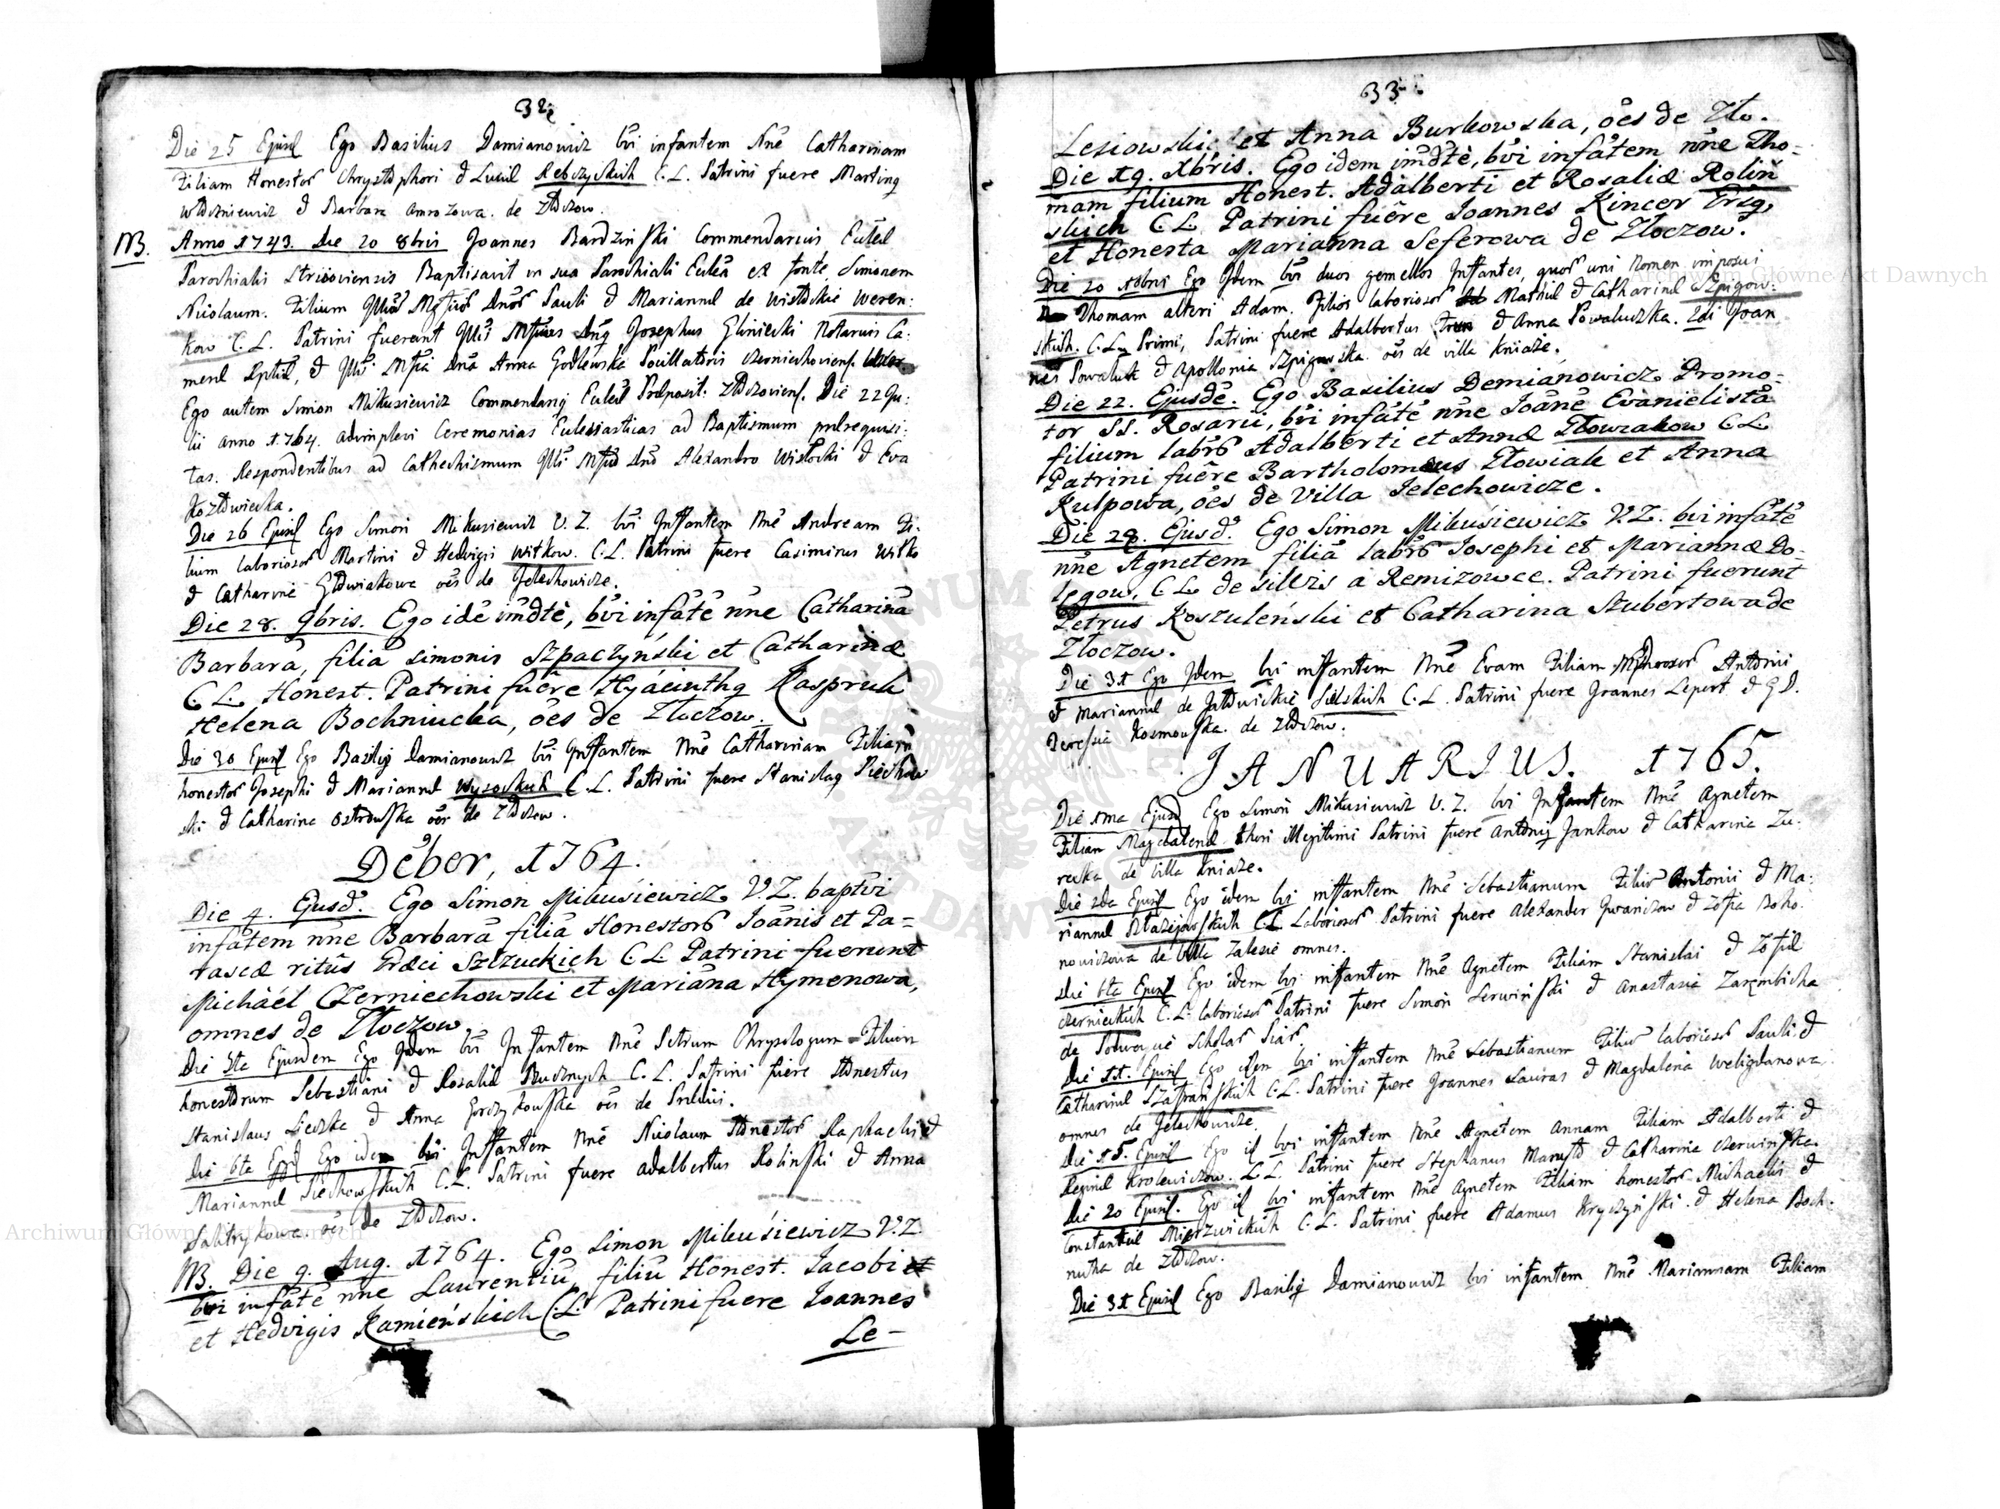 32
Die 25 Ejusd Ego Basilius Damianowicz bvi infantem Nne Catharinam
Filiam Honestor Chrystophori & Luciæ Rebczyskich C.L. Patrini fuere Marting
& Barbara de Złoczow.
NB. Anno 1743. Die 20 8bris Joannes Bardzinski Commendarius Eccleæ
Parochialis Baptisavit in sua Parochiali Ecclia ex fonte, Simonem
Nicolaum. Filium Pauli & Mariannæ de Wisłockie Weren:
kow C.L. Patrini fuerunt Josephus Gliniecki Notarius Ca:
& Anna Godlewska
Ego autem Simon Mikusiewicz Commendarig Eccleæ Præposit. Złoczoviens. Die 22 Ju:
lii Anno 1764. adimplevi Ceremonias Eclesiasticas ad Baptismum prærequisi:
tas. Respondentibus ad Cathechismum Alexandro Wisłocki & Eva
Kozłowiecka.
Die 26 Ejusd Ego Simon Mikusiewicz V.Z. bvi Infantem Nne Andream Fi:
lium laboriosor Martini & Hedvigis Witkow. C.L. Patrini fuere Casimirus Witko
& Catharina Głowiakowa oes de Jelechowicze.
Die 28. 9bris. Ego idē imdtè, bvi infātē nne Catharinā
Barbarā, filiā Simonis Szpaczyński et Catharinæ
C L. Honest. Patrini fuêre Hyácinthg Kaspruk
Helena Bochniucka, ōes de Złoczow.
Die 30 Ejusd Ego Basilig Damianowicz bvi Infantem Nne Catharinam Filiam
honestor Josephi & Mariannæ Wysockich C.L. Patrini fuere Stanislag Piechow
ski & Catharina Ostrowska oes de Złoczow.
Dēber, 1764.
Die 4. Ejusd. Ego Simon Mikuśiewicz V.Z. baptvi
infātem nne Barbarā filiā Honestorū Ioānis et Pa=
rascæ ritûs Græci Szczuckich C L Patrini fuerunt
Michâel Czerniechowski et Mariāna Hymenowa,
omnes de Złoczow
Die 5ta Ejusdem Ego Idem bvi Infantem Nne Petrum Chrysologum Filium
honestorum Sebastiani & Rosaliæ C.L. Patrini fuere Honestus
Stanislaus & Anna oes de
Die 6ta Ejusd Ego idem bvi Infantem Nne Nicolaum Honestor Raphaelis &
Mariannæ Piechowskich C.L. Patrini fuere Adalbertus Rolinski & Anna
oes de Złoczow.
NB. Die 9. Aug. 1764. Ego Simon Mikuśiewicz V.Z.
bvi infātē nne Laurentiū, filiū Honest. Iacobi et
et Hedvigis Kamieńskich C.L. Patrini fuere Ioannes
Le-
33
Lesiowski et Anna Burkowska, ōes de Zło.
Die 19. Xbris. Ego idem imdtè, bvi infātem nne Tho=
mam filium Honest. Adalberti et Rosaliæ Roliń
skich C L Patrini fuêre Ioannes Kincer
et Honesta Marianna Seferowa de Złoczow.
Die 20 Xbris Ego Idem bvi duos gemellos Infantes, quor uni Nomen imposui
Thomam alteri Adam. Filios laboriosor Mathiæ & Catharinæ Szpigow:
skich. C.L. Primi, Patrini fuere Adalbertus & Anna Powaluczka. 2di Joan
nes Powaluk & Apollonia Szpigowska. oes de villa Kniaże.
Die 22. Ejusdē. Ego Basilius Demianowicz Promo=
tor SS. Rosarii, bvi infātē nne Ioānē Evanielistā
filium labrō Adalberti et Annæ Złowiakow C L
Patrini fuêre Bartholomæus Złowiak et Anna
Kulpowa, ōes de Villa Ielechowicze.
Die 28. Ejusd. Ego Simon Mikuśiewicz V.Z. bvi infātē
nne Agnetem filiā labrō Iosephi et Mariannæ Do=
łęgow, C L de silvis a Remizowce. Patrini fuerunt
Petrus Koszuleński et Catharina Szubertowa de
Złoczow.
Die 31 Ego Idem bvi infantem Nne Evam Filiam Antonii
& Mariannæ de C.L. Patrini fuere Joannes Lepert & G.D.
Teressia Kosmowska de Złoczow.
JANUARIUS. 1765.
Die 1ma Ejusd Ego Simon Mikusiewicz V.Z. bvi Infantem Nne Agnetem
Filiam Magdalenæ thori Illegitimi Patrini fuere Antonig Jankow & Catharina Zu:
recka de Villa Kniaże.
Die 2da Ejusd Ego idem bvi infantem Nne Sebastianum Filiū Antonii & Ma:
riannæ C.L. Laboriosor Patrini fuere Alexander Iwaniczow & Zofia Boho:
nowiczowa de Villa Zalesie omnes.
Die 6ta Ejusd Ego idem bvi infantem Nne Agnetem Filiam Stanislai & Zofiæ
Czernieckich C.L. laboriosor Patrini fuere Simon Serwiński & Anastasia Zarembicka
de
Die 11. Ejusd Ego idem bvi infantem Nne Sebastianum Filiū laboriosor Pauli &
Catharinæ Szafrańskich C.L. Patrini fuere Joannes Lauras & Magdalena Weligdanowa
omnes de Jelechowicze.
Die 15. Ejusd Ego id bvi infantem Nne Agnetem Annam Filiam Adalberti &
Reginæ Krolewiczow. C.L. Patrini fuere Stephanus & Catharina Czerwińska.
Die 20 Ejusd. Ego id bvi infantem Nne Agnetem Filiam honestor Michaelis &
Constantiæ Mierzwickich C.L. Patrini fuere Adamus Kryczyński. & Helena Boch:
nucka de Złoczow.
Die 31 Ejusd Ego Basilig Damianowicz bvi infantem Nne Mariannam Filiam
Archiwum Główne Akt Dawnych
Archiwum Główne Akt Dawnych
ARCHIWUM GŁÓWNE AKT DAWNYCH